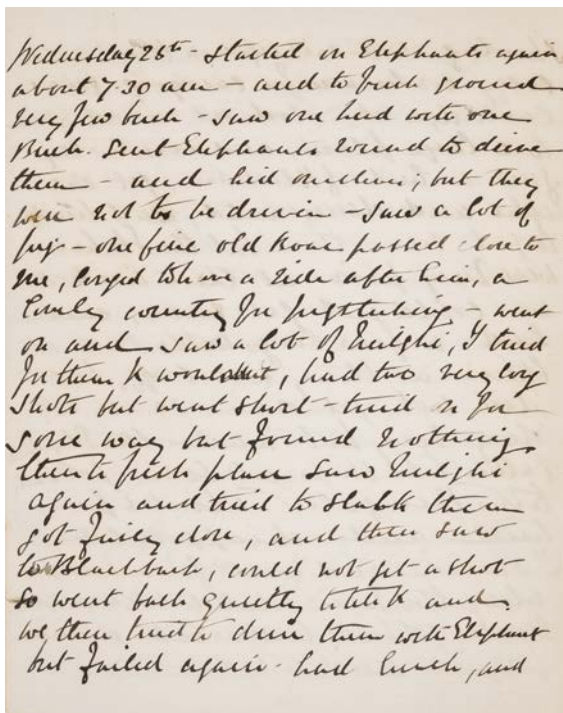 Wednesday 26th - started on Elephants again
about 7.30 am - and to fresh ground
very few buck - saw one herd with one
Buck. Sent Elephants round to drive
them - and hid ourselves; but they
were not to be driven - saw a lot of
pig - one fine old Boar passed close to
me, longed to have a ride after him, a
lovely country for pigsticking - went
on and saw a lot of Neilghi, I tried
for them & would, had two very long
shots but went short - tried on for
some way but found nothing
then to fresh place saw Neilghi
again and tried to stalk them
got fairly close, and then saw
two Blackbuck, could not get a shot
so went back quietly to and
we then tried to drive them with Elephant
but failed again - had lunch, and